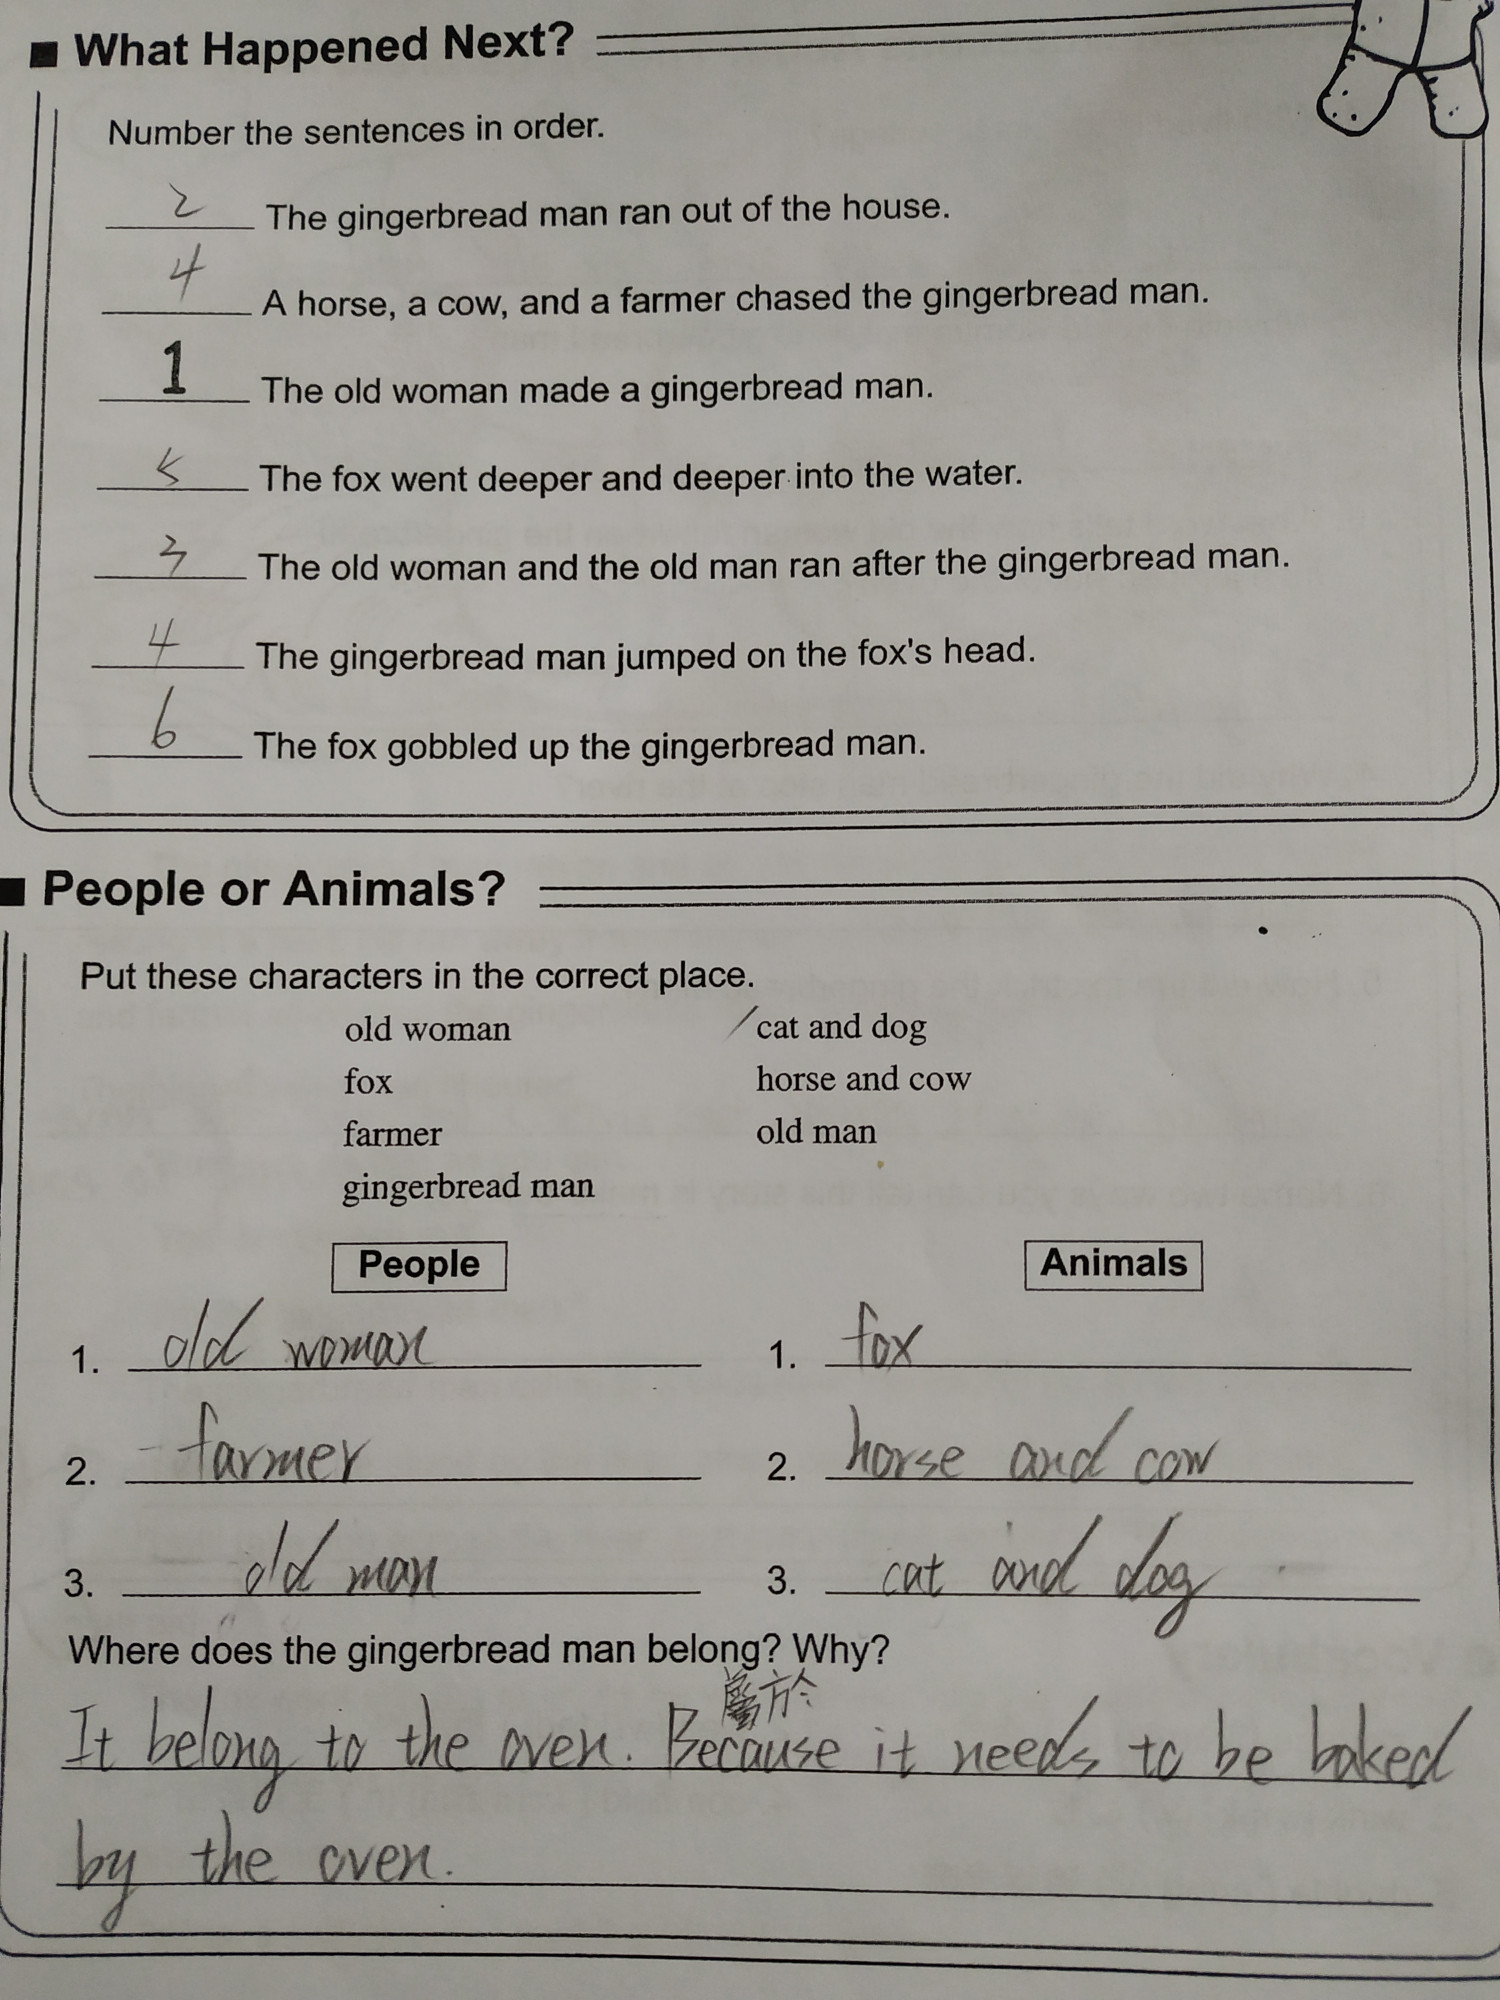 What Happened Next?
Number the sentences in order.
2 The gingerbread man ran out of the house.
4 A horse, a cow, and a farmer chased the gingerbread man.
1 The old woman made a gingerbread man.
5 The fox went deeper and deeper into the water.
3 The old woman and the old man ran after the gingerbread man.
4 The gingerbread man jumped on the fox's head.
6 The fox gobbled up the gingerbread man.
People or Animals?
Put these characters in the correct place.
old woman cat and dog
fox horse and cow
farmer old man
gingerbread man
People Animals
1. old woman 1. fox
2. farmer 2. horse and cow
3. old man 3. cat and dog
Where does the gingerbread man belong? Why?
屬於
It belong to the oven. Because it needs to be baked
by the oven.